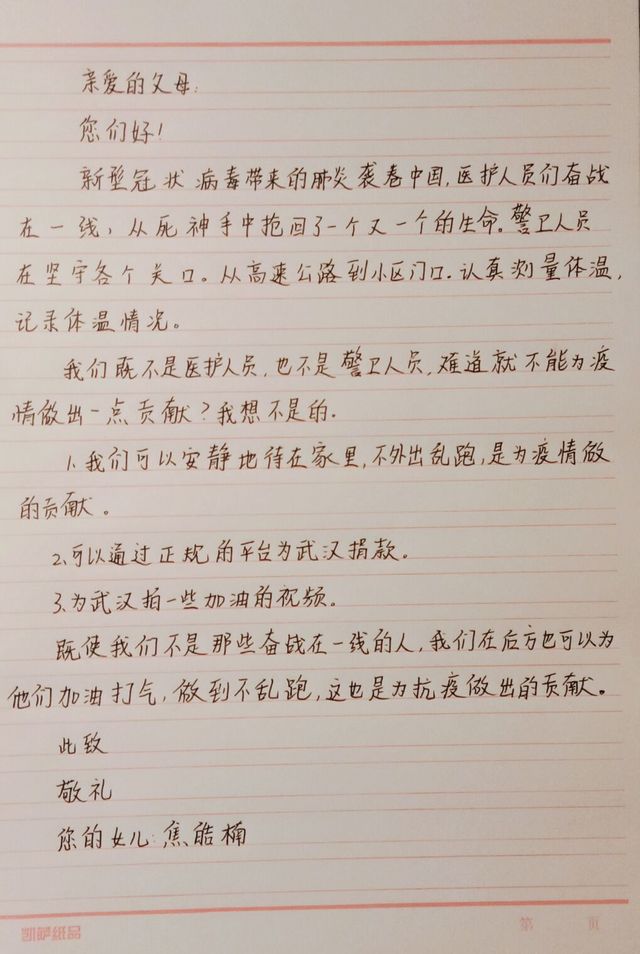 亲爱的父母:
您们好!
新型冠状病毒带来的肺炎袭卷中国,医护人员们奋战
在一线,从死神手中抢回了一个又一个的生命。警卫人员
在坚守各个关口。从高速公路到小区门口.认真测量体温,
记录体温情况。
我们既不是医护人员,也不是警卫人员,难道就不能为疫
情做出一点贡献?我想不是的.
1.我们可以安静地待在家里,不外出乱跑,是为疫情做
的贡献。
2.可以通过正规的平台为武汉捐款。
3.为武汉拍一些加油的视频。
既使我们不是那些奋战在一线的人,我们在后方也可以为
他们加油打气,做到不乱跑,这也是为抗疫做出的贡献。
此致
敬礼
您的女儿:焦皓楠
凯萨纸品
第 页